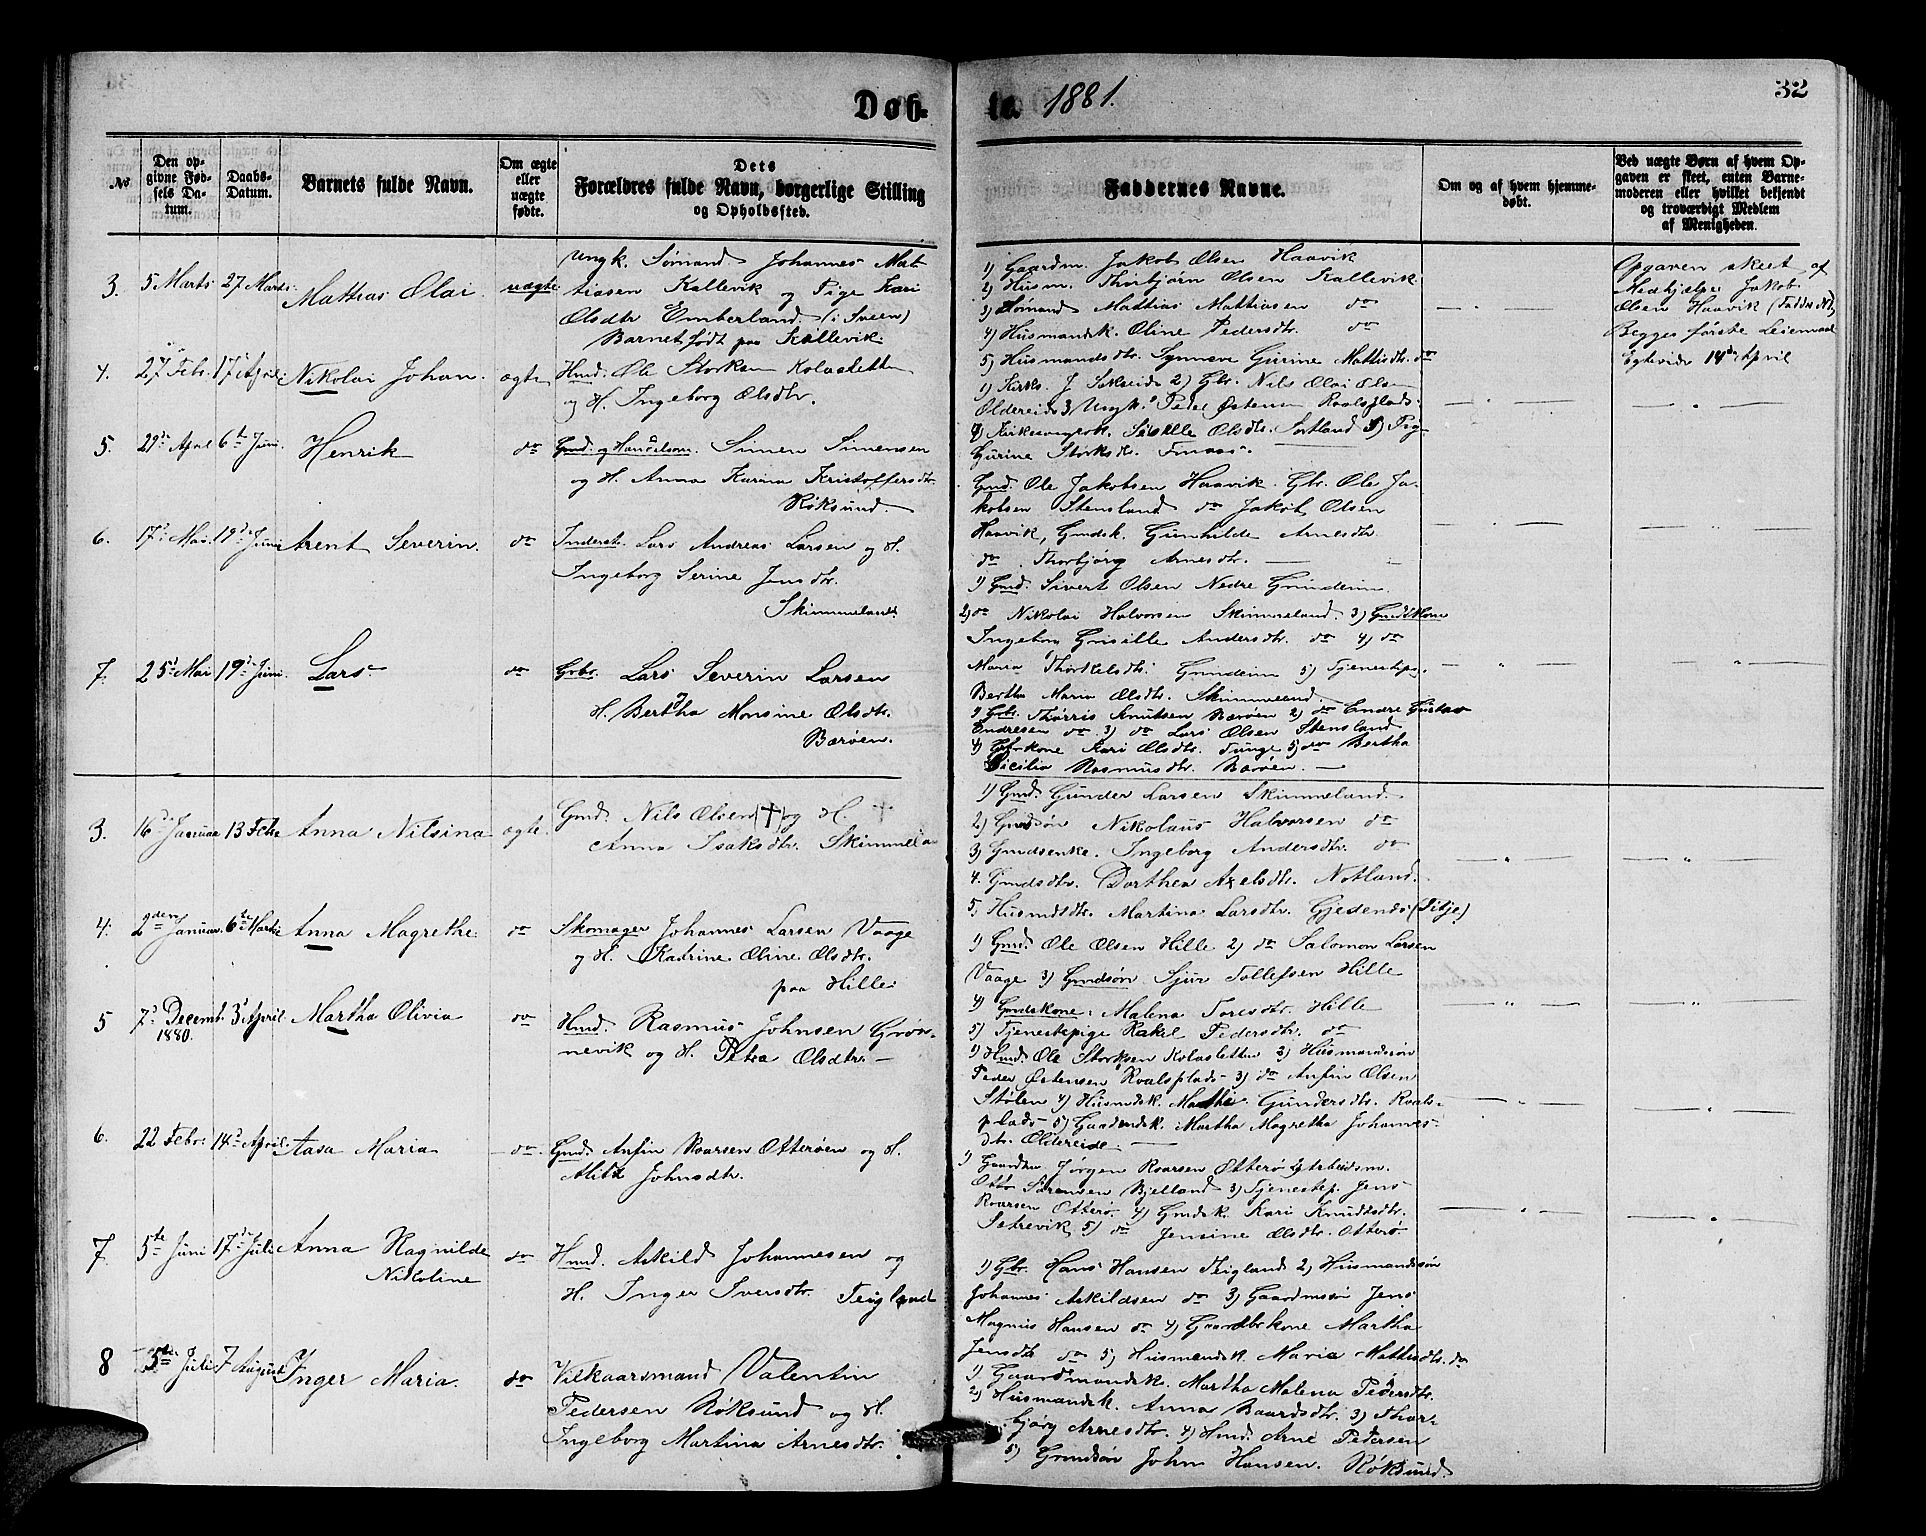 Døb-
te. 1881.
32
No
Den op-
givne Fød-
sels Da-
tum.
Daabs-
Datum.
Barnets fulde Navn.
Om ægte
eller
uægte
fødte.
Dets
Forældres fulde Navn, borgerlige Stilling
og Opholdssted.
Faddernes Navne.
Om og af hvem hjemme-
døbt.
Ved uægte Børn af hvem Op-
gaven er skeet, enten Barne-
moderen eller hvilket bekjendt
og troværdigt Medlem
af Menigheden.
3. 5 Marts 27 Marts. Mattias Olai. uægte
Ungk. Sømand Johannes Mat-
tiasen Kallevik og Pige Kari
Olsdtr Emberland. (i Sveen)
Barnet født paa Kallevik.
1) Gaardm. Jakob Olsen Haavik
2) Husm. Thorbjørn Olsen Kallevik
3) Sømand Mattias Mattiasen do
4) Husmandsk. Oline Pedersdtr. do
5) Husmandsdtr. Synneve Gurine Mattisdtr. do
Opgaven skeet af
Medhjelper Jakob
Olsen Haavik (Fadder No 1)
Begges første Leiermaal
Egteviede 14de April
4. 27 Febr. 17 April Nikolai Johan. ægte
Hmd. Ole Storksen Kolasletten
og H. Ingeborg Olsdtr.
1) Kirks. J. 2) Gbr. Nils Olai Olsen
Oldereide 3) Ungk. Peder Østensen Roalsplads.
4) Sisille Olsdtr. Sortland 5) Pig
Gurine Storksdtr.
5. 29de April 6te Juni. Henrik do
Gmd. og Handelsm. Simen Simensen
og H. Anna Karina Kristoffersdtr.
Røksund.
Gmd. Ole Jakobsen Haavik. Gbr. Ole Ja-
kobsen Stensland do Jakob Olsen
Haavik, Gmdsk. Gunhilde Arnesdtr
do Thorbjørg Arnesdtr.
6. 17de Mai. 19de Juni Arent Severin. do
Inderst. Lars Andreas Larsen og H.
Ingeborg Serine Jensdtr.
Skimmeland.
1) Gmd. Sivert Olsen Nedre Grindeim
2) do Nikolai Halvorsen Skimmeland. 3) Gmdskone
Ingeborg Grisille Andersdtr. do 4) do
Maria Thorkelsdtr. Grindeim 5) Tjenestepig.
Bertha Maria Olsdtr. Skimmeland
7. 25de Mai 19de Juni. Lars do
Grbr. Lars Severin Larsen
H. Bertha Monsine Olsdtr.
Børøen.
1) Gbr. Thorris Knutsen Børøen 2) do Endre Gustav
Endresen do 3) do Lars Olsen Stensland
4) Gbrkone Kari Olsdtr. Tunge 5) do Bertha
Sicilia Rasmusdtr. Børøen.
3. 16de Januar 13 Febr. Anna Nilsina ægte.
Gmd. Nils Olsen (†) og H.
Anna Isaksdtr. Skimmela
1) Gmd. Gunder Larsen Skimmeland.
2) Gmdssøn Nikolaus Halvorsen do
3) Gmdsenke. Ingeborg Andersdtr. do
4. Gmdsdtr. Dorthea Axelsdtr. Notland.
5. Husmdsdtr. Martina Larsdtr. Gjedends (Fitje)
4. 2den Januar. 6te Marts Anna Magrethe. do
Skomager Johannes Larsen Vaage
og H. Katrine Oline Olsdtr.
paa Hille.
1) Gmd. Ole Olsen Hille 2) do Salomon Larsen
Vaage 3) Gmdsøn Sjur Tollefsen Hille
4) Gmdskone. Malena Toresdtr. Hille
5) Tjenestepige Rakel Pedersdtr. do
5 7de Decemb. 1880. 3de April. Martha Olivia do
Hmd. Rasmus Johnsen Grøn-
nevik og H. Petra Olsdtr.
1) Hmd. Ole Storksen Kolasletten 2) Husmandssøn
Peder Østensen Roalsplads 3) do Anfin Olsen
Stølen 4) Husmdsk. Marthe Gundersdtr. Roals-
plads 5) Gaardmdsk. Martha Magretha Johannes-
dtr. Oldereide.
6. 22 Febr. 14de April. Aasa Maria do.
Gmd. Anfin Roarsen Otterøen og H.
Alida Johnsdtr.
1) Gaardm Jørgen Roarsen Otterø 2) Arbeidsm.
Otto Sørensen Bjelland 3) Tjenestep. Jens
Roarsen Otterø 4) Gmdsk. Kari Knudtsdtr.
Sætrevik 5) do Jensine Olsdtr. Otterø.
7. 5te Juni 17de Juli Anna Ragnilde
Nicoline do
Hmd. Askild Johannesen og
H. Inger Iversdtr. Teigland
1) Gbr. Hans Hansen Teigland 2) Husmandssøn
Johannes Askildsen do 3) Gaardmssøn Jens
Magnus Hansen do 4) Gaardbrkone Martha
Jensdtr do 5) Husmandsk. Maria Mathisdtr. do
8 5te Juli 7 August Inger Maria. do
Vilkaarsmand Valentin
Pedersen Røksund og H.
Ingeborg Martina Arnesdtr.
1) Gaardmandsk. Martha Malena Pedersdtr.
2) Husmandsk. Anna Baardsdtr. 3) Thor-
bjørg Arnesdtr. 4) Hmd. Arne Pedersen
5) Grmdsøn John Hansen. Røksund.